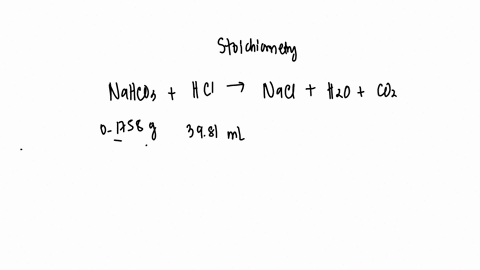 Stoichiometry
NaHCO3 + HCl → NaCl + H2O + CO2
0.1758 g 39.81 mL